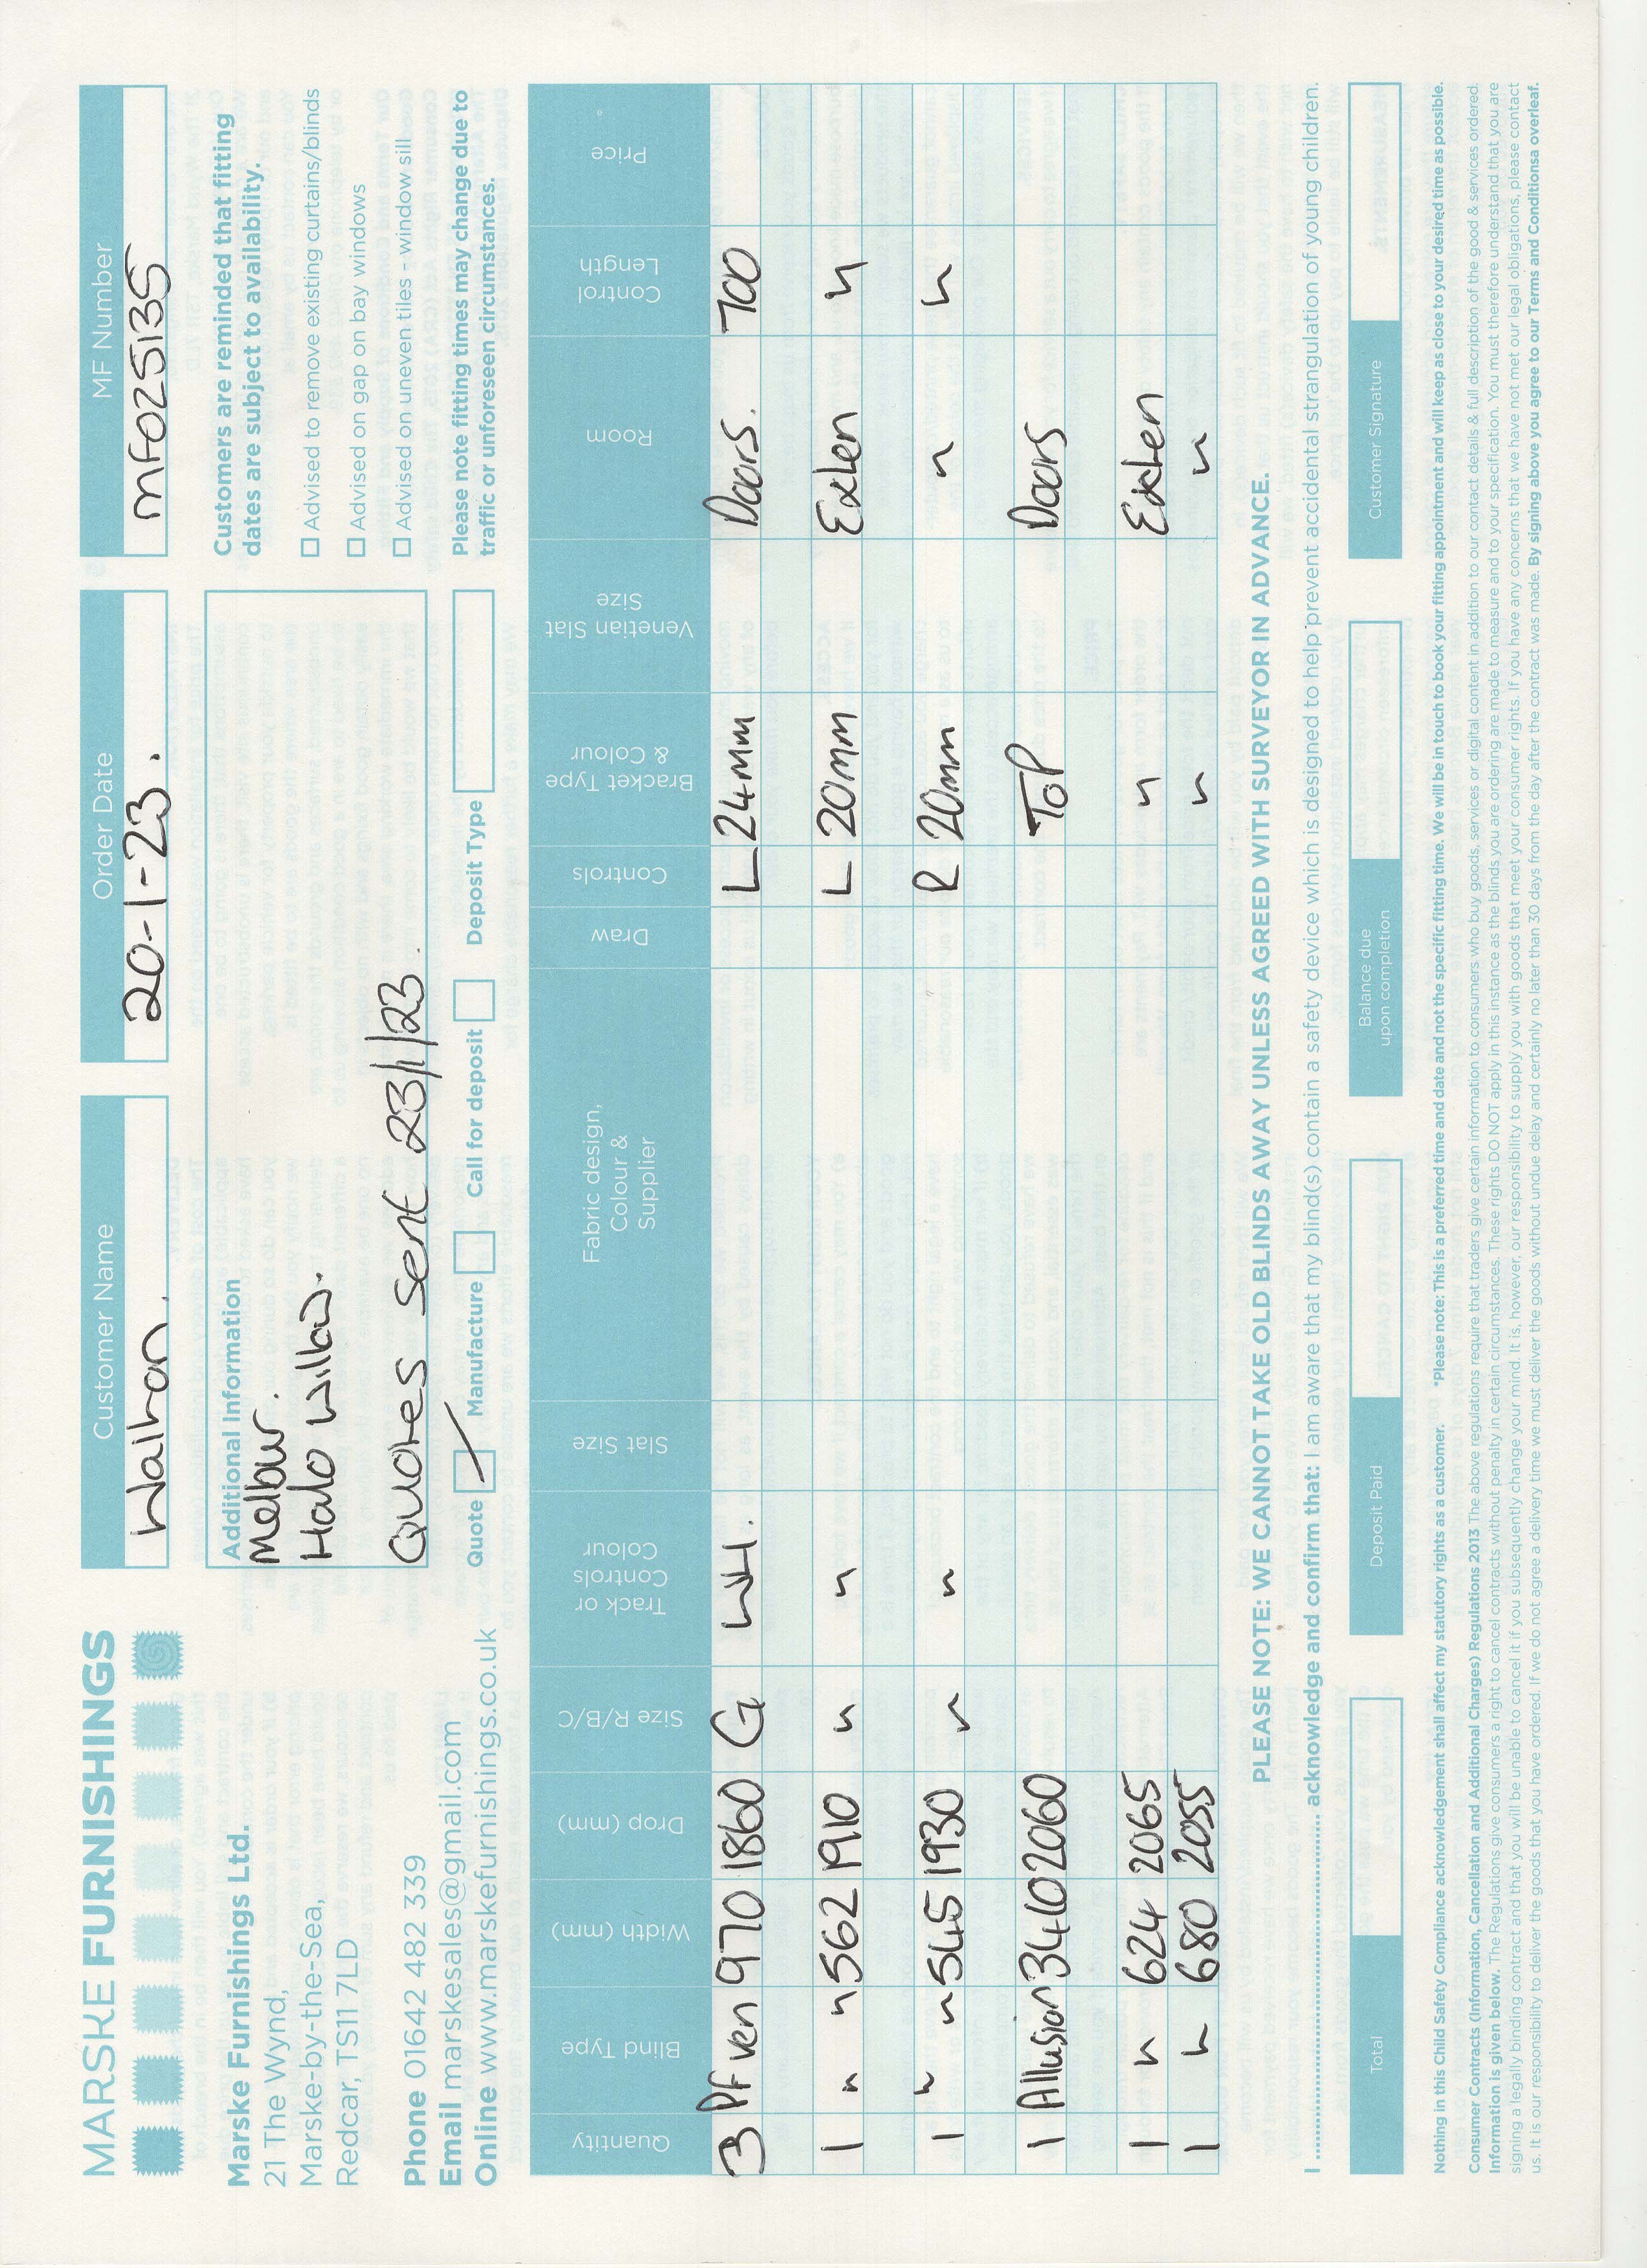 MARSKE FURNISHINGS
Marske Furnishings Ltd.
21 The Wynd,
Marske-by-the-Sea,
Redcar, TS11 7LD
Phone 01642 482 339
Email marskesales@gmail.com
Online www.marskefurnishings.co.uk
Customer Name
Walton.
Order Date
20-1-23.
MF Number
MF025135
Additional Information
Melbur.
Halo Willow.
Quotes sent 23/1/23.
Quote ✓ Manufacture Call for deposit Deposit Type
Customers are reminded that fitting
dates are subject to availability.
Advised to remove existing curtains/blinds
Advised on gap on bay windows
Advised on uneven tiles - window sill
Please note fitting times may change due to
traffic or unforeseen circumstances.
Quantity Blind Type Width (mm) Drop (mm) Size R/B/C Track or Controls Colour Slat Size Fabric design, Colour & Supplier Draw Controls Bracket Type & Colour Venetian Slat Size Room Control Length Price
3 Pf ven 970 1860 G WH. L 24mm Doors. 700
1 " " 562 1910 " " L 20mm Exten "
1 " " 545 1930 " " R 20mm " "
1 Allusion 3410 2060 TOP Doors
1 " 624 2065 " Exten
1 " 680 2055 " "
PLEASE NOTE: WE CANNOT TAKE OLD BLINDS AWAY UNLESS AGREED WITH SURVEYOR IN ADVANCE.
I .......................... acknowledge and confirm that: I am aware that my blind(s) contain a safety device which is designed to help prevent accidental strangulation of young children.
Total
Deposit Paid
Balance due
upon completion
Customer Signature
Nothing in this Child Safety Compliance acknowledgement shall affect my statutory rights as a customer. *Please note: This is a preferred time and date and not the specific fitting time. We will be in touch to book your fitting appointment and will keep as close to your desired time as possible.
Consumer Contracts (Information, Cancellation and Additional Charges) Regulations 2013 The above regulations require that traders give certain information to consumers who buy goods, services or digital content in addition to our contact details & full description of the good & services ordered.
Information is given below. The Regulations give consumers a right to cancel contracts without penalty in certain circumstances. These rights DO NOT apply in this instance as the blinds you are ordering are made to measure and to your specification. You must therefore understand that you are
signing a legally binding contract and that you will be unable to cancel it if you subsequently change your mind. It is, however, our responsibility to supply you with goods that meet your consumer rights. If you have any concerns that we have not met our legal obligations, please contact
us. It is our responsibility to deliver the goods that you have ordered. If we do not agree a delivery time we must deliver the goods without undue delay and certainly no later than 30 days from the day after the contract was made. By signing above you agree to our Terms and Conditionsa overleaf.